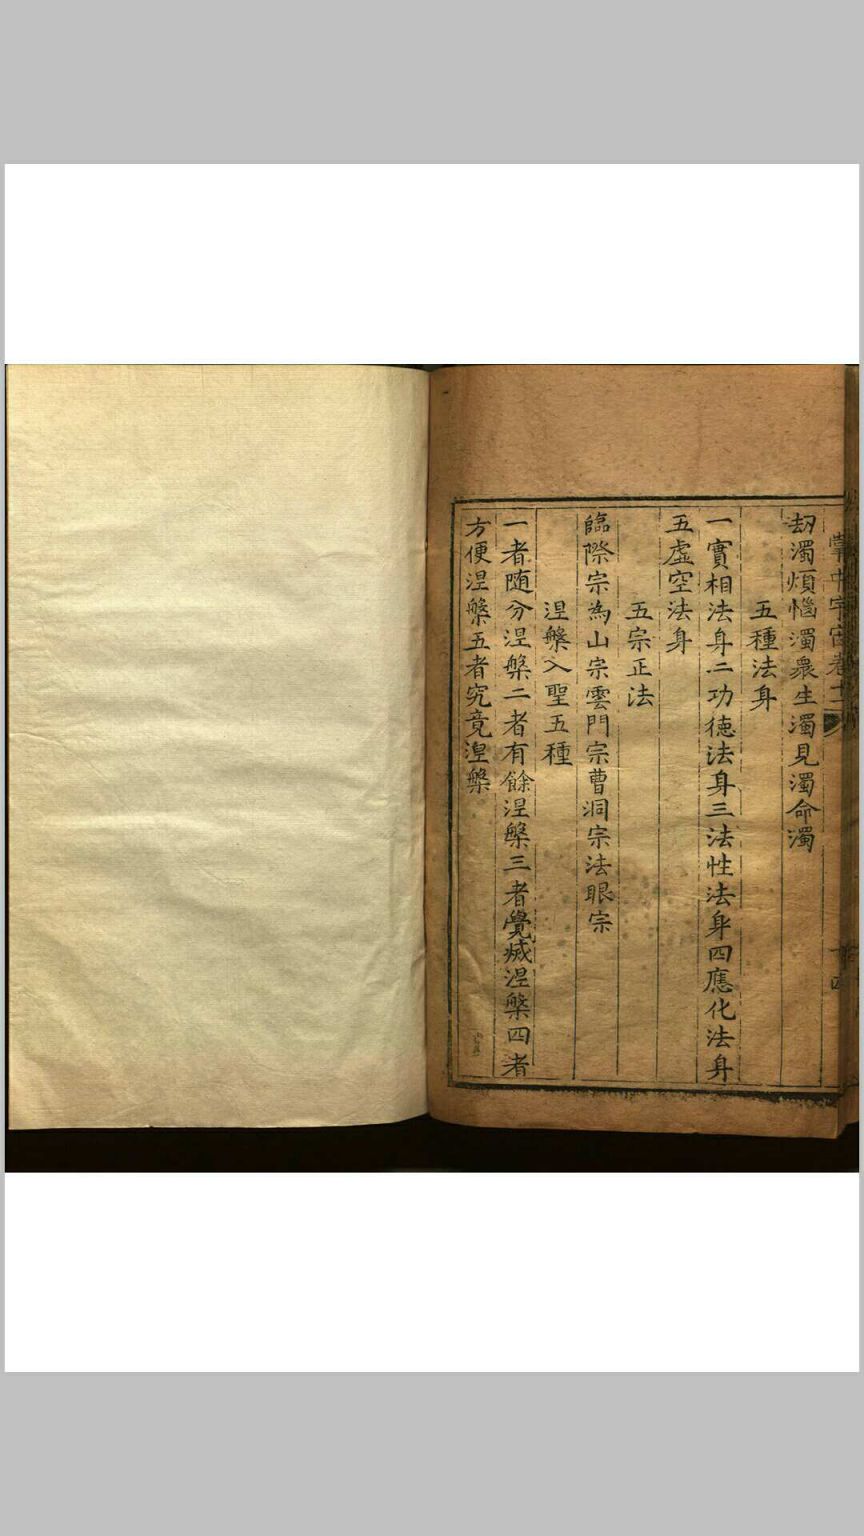 掌中宇宙卷十二
十四
劫濁煩惱濁衆生濁見濁命濁
五種法身
一實相法身二功德法身三法性法身四應化法身
五虛空法身
五宗正法
臨際宗為山宗雲門宗曹洞宗法眼宗
涅槃入聖五種
一者随分涅槃二者有餘涅槃三者覺滅涅槃四者
方便涅槃五者究竟涅槃